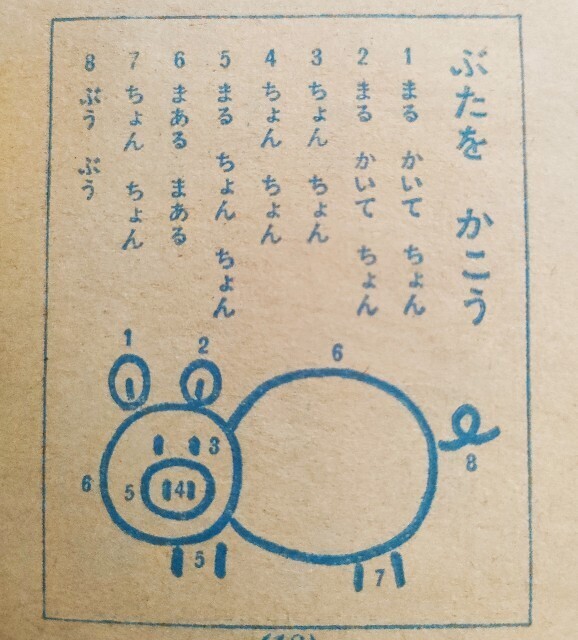 ぶたを かこう
1 まる かいて ちょん
2 まる かいて ちょん
3 ちょん ちょん
4 ちょん ちょん
5 まる ちょん ちょん
6 まある まある
7 ちょん ちょん
8 ぶう ぶう
1
2
6
3
8
6
5
4
5
7